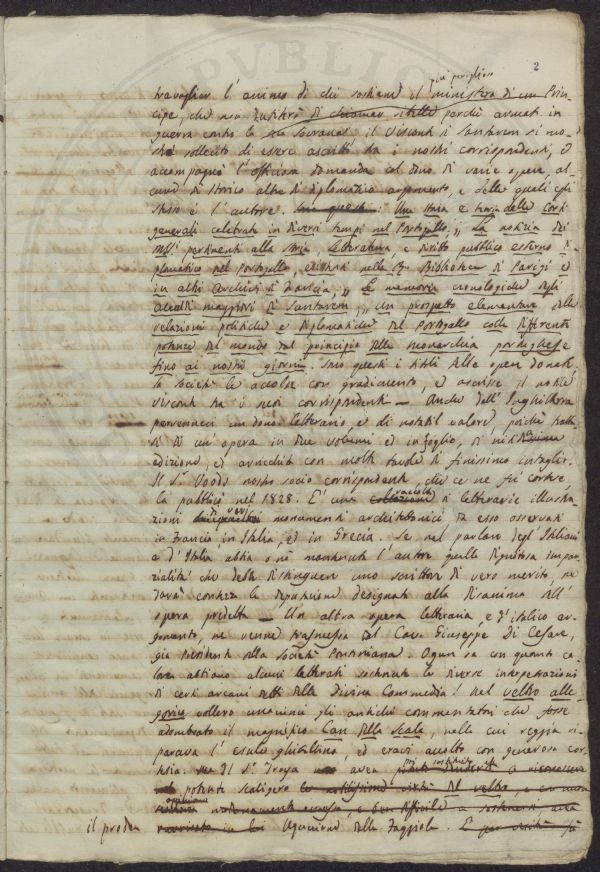 2
più periglioso
travagliar l'animo di chi sostiene il ministero di un Prin-
cipe, che non
guerra contro la sua Sovrana: il Visconte di Santarem si mo-
strò sollecito di essere ascritto tra i nostri corrispondenti, ed
accompagnò l'officiosa domanda col dono di varie opere, al-
cune di storico altre di diplomatico argomento, e delle quali egli
stesso è l'autore. Una storia e teoria delle corti
generali celebrate in diversi tempi nel Portogallo, „ La notizia dei
MSS. pertinenti alla storia, letteratura, e diritto pubblico esterno di-
plomatico del Portogallo, esistenti nella Biblioteca di Parigi e
in altri Archivj di Francia, „ Le memorie cronologiche degli
Alcaldi maggiori di Santarem, „ un prospetto elementare delle
relazioni politiche e diplomatiche del Portogallo colle differenti
potenze del mondo dal principio della monarchia portoghese
fino ai nostri giorni. Sono questi i titoli delle opere donate,
la società le accolse con gradimento, ed ascrisse il nobile
Visconte tra i suoi corrispondenti — Anche dall'Inghilterra
pervenneci un dono letterario, e di notabil valore, poichè tratta-
si di un'opera in due volumi ed in foglio, di nitidissima
edizione, ed arricchita con molte tavole di finissimo intaglio.
Il Sr. Woods nostro socio corrispondente, che ce ne fu cortese,
la pubblicò nel 1828. È una raccolta di letterarie illustra-
zioni di varj monumenti architettonici da esso osservati
in Francia, in Italia, ed in Grecia. Se nel parlare degl'Italiani
e d'Italia abbia o nò mantenuta l'autore quella dignitosa impar-
zialità che deve distinguere uno scrittore di vero merito, ne
farà contezza la deputazione designata alla disamina dell'
opera predetta — Un altra opera letteraria, e d'italico ar-
gomento, ne venne trasmessa dal Cav. Giuseppe Di Cesare,
già Presidente della Società Pontaniana. Ognun sa con quanto ca-
lore abbiano alcuni letterati sostenute le diverse interpretazioni
di certi arcani detti della Divina Commedia! Nel veltro alle-
gorico vollero unanimi gli antichi commentatori che fosse
adombrato il magnifico Can della Scala, nella cui reggia ri-
parava l'esule ghibellino, ed eravi accolto con generosa cor-
tesia: ma Il Sr. Troya avea
potente Scaligero
opinione
il prode Uguccione della Faggiola.